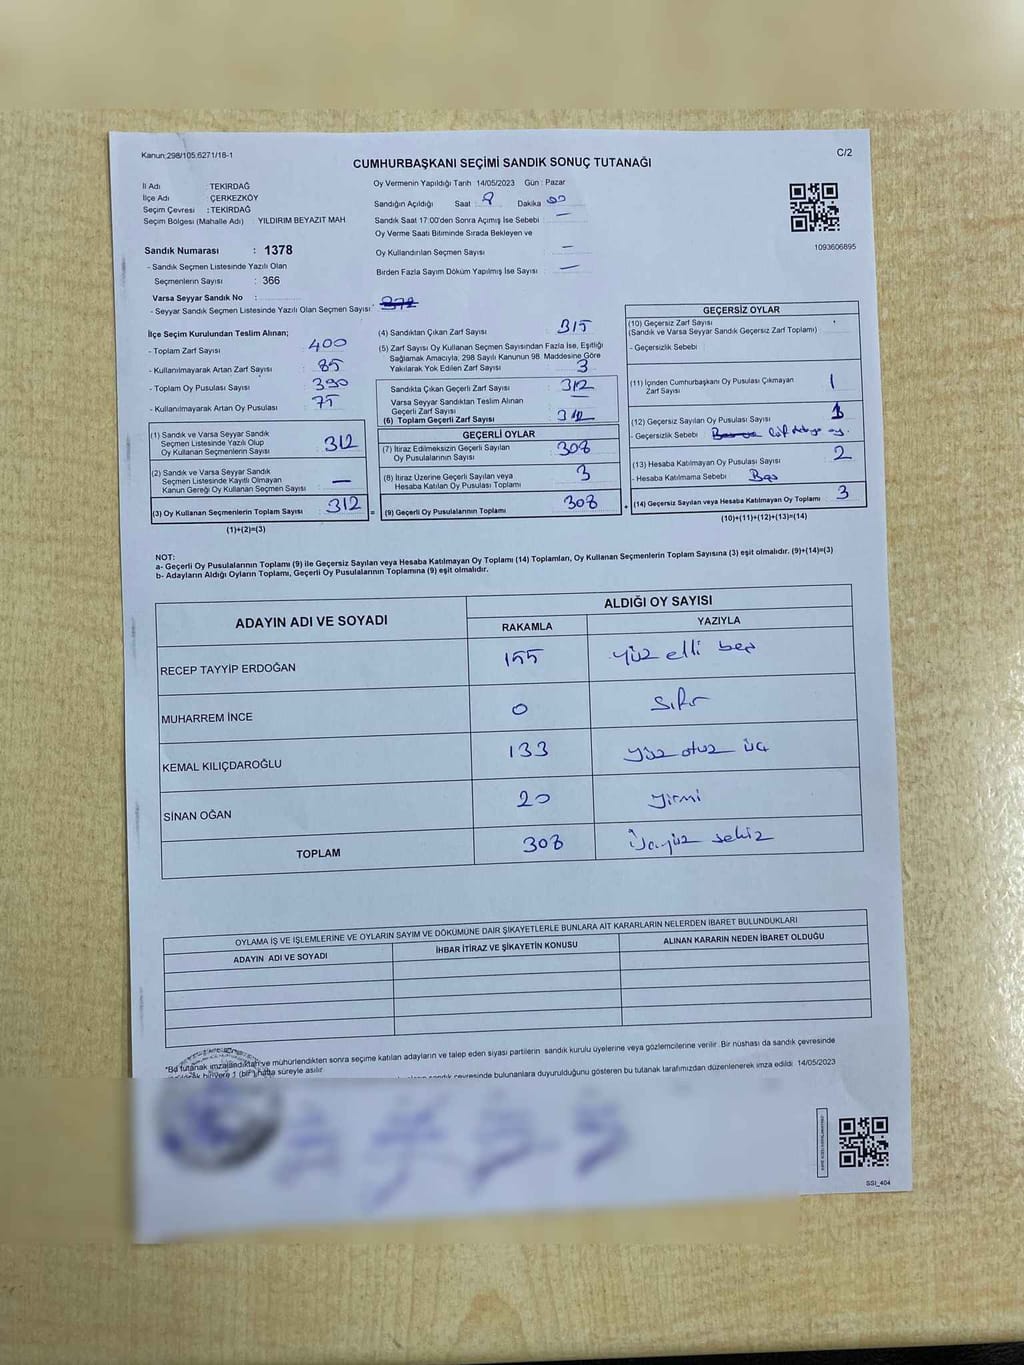 Kanun:298/105.6271/16-1
C/2
CUMHURBAŞKANI SEÇİMİ SANDIK SONUÇ TUTANAĞI
İl Adı : TEKİRDAĞ
İlçe Adı : ÇERKEZKÖY
Seçim Çevresi : TEKİRDAĞ
Seçim Bölgesi (Mahalle Adı) YILDIRIM BEYAZIT MAH
Oy Vermenin Yapıldığı Tarih 14/05/2023 Gün : Pazar
Sandığın Açıldığı Saat : 8 Dakika : 00
Sandık Saat 17:00'den Sonra Açımış İse Sebebi : —
Oy Verme Saati Bitiminde Sırada Bekleyen ve
Oy Kullandırılan Seçmen Sayısı : —
Birden Fazla Sayım Döküm Yapılmış İse Sayısı : —
1093606895
Sandık Numarası : 1378
- Sandık Seçmen Listesinde Yazılı Olan
Seçmenlerin Sayısı : 366
Varsa Seyyar Sandık No :
- Seyyar Sandık Seçmen Listesinde Yazılı Olan Seçmen Sayısı :
İlçe Seçim Kurulundan Teslim Alınan;
- Toplam Zarf Sayısı : 400
- Kullanılmayarak Artan Zarf Sayısı : 85
- Toplam Oy Pusulası Sayısı : 390
- Kullanılmayarak Artan Oy Pusulası : 75
(1) Sandık ve Varsa Seyyar Sandık
Seçmen Listesinde Yazılı Olup
Oy Kullanan Seçmenlerin Sayısı 312
(2) Sandık ve Varsa Seyyar Sandık
Seçmen Listesinde Kayıtlı Olmayan
Kanun Gereği Oy Kullanan Seçmen Sayısı —
(3) Oy Kullanan Seçmenlerin Toplam Sayısı 312
(1)+(2)=(3)
(4) Sandıktan Çıkan Zarf Sayısı : 315
(5) Zarf Sayısı Oy Kullanan Seçmen Sayısından Fazla İse, Eşitliği
Sağlamak Amacıyla, 298 Sayılı Kanunun 98. Maddesine Göre
Yakılarak Yok Edilen Zarf Sayısı : 3
Sandıkta Çıkan Geçerli Zarf Sayısı : 312
Varsa Seyyar Sandıktan Teslim Alınan
Geçerli Zarf Sayısı : —
(6) Toplam Geçerli Zarf Sayısı : 312
GEÇERLİ OYLAR
(7) İtiraz Edilmeksizin Geçerli Sayılan
Oy Pusulalarının Sayısı : 308
(8) İtiraz Üzerine Geçerli Sayılan veya
Hesaba Katılan Oy Pusulası Toplamı : 3
(9) Geçerli Oy Pusulalarının Toplamı : 308
GEÇERSİZ OYLAR
(10) Geçersiz Zarf Sayısı
(Sandık ve Varsa Seyyar Sandık Geçersiz Zarf Toplamı) :
- Geçersizlik Sebebi :
(11) İçinden Cumhurbaşkanı Oy Pusulası Çıkmayan
Zarf Sayısı : 1
(12) Geçersiz Sayılan Oy Pusulası Sayısı : 1
- Geçersizlik Sebebi :
(13) Hesaba Katılmayan Oy Pusulası Sayısı : 2
- Hesaba Katılmama Sebebi : Boş
(14) Geçersiz Sayılan veya Hesaba Katılmayan Oy Toplamı : 3
(10)+(11)+(12)+(13)=(14)
NOT:
a- Geçerli Oy Pusulalarının Toplamı (9) ile Geçersiz Sayılan veya Hesaba Katılmayan Oy Toplamı (14) Toplamları, Oy Kullanan Seçmenlerin Toplam Sayısına (3) eşit olmalıdır. (9)+(14)=(3)
b- Adayların Aldığı Oyların Toplamı, Geçerli Oy Pusulalarının Toplamına (9) eşit olmalıdır.
ADAYIN ADI VE SOYADI
ALDIĞI OY SAYISI
RAKAMLA YAZIYLA
RECEP TAYYİP ERDOĞAN 155 yüz elli beş
MUHARREM İNCE 0 sıfır
KEMAL KILIÇDAROĞLU 133 yüz otuz üç
SİNAN OĞAN 20 yirmi
TOPLAM 308 üçyüz sekiz
OYLAMA İŞ VE İŞLEMLERİNE VE OYLARIN SAYIM VE DÖKÜMÜNE DAİR ŞİKAYETLERLE BUNLARA AİT KARARLARIN NELERDEN İBARET BULUNDUKLARI
ADAYIN ADI VE SOYADI İHBAR İTİRAZ VE ŞİKAYETİN KONUSU ALINAN KARARIN NEDEN İBARET OLDUĞU
*Bu tutanak imzalandıktan ve mühürlendikten sonra seçime katılan adayların ve talep eden siyasi partilerin sandık kurulu üyelerine veya gözlemcilerine verilir. Bir nüshası da sandık çevresinde
1 (bir) hafta süreyle asılır.
sandık çevresinde bulunanlara duyurulduğunu gösteren bu tutanak tarafımızdan düzenlenerek imza edildi. 14/05/2023
SSI_404